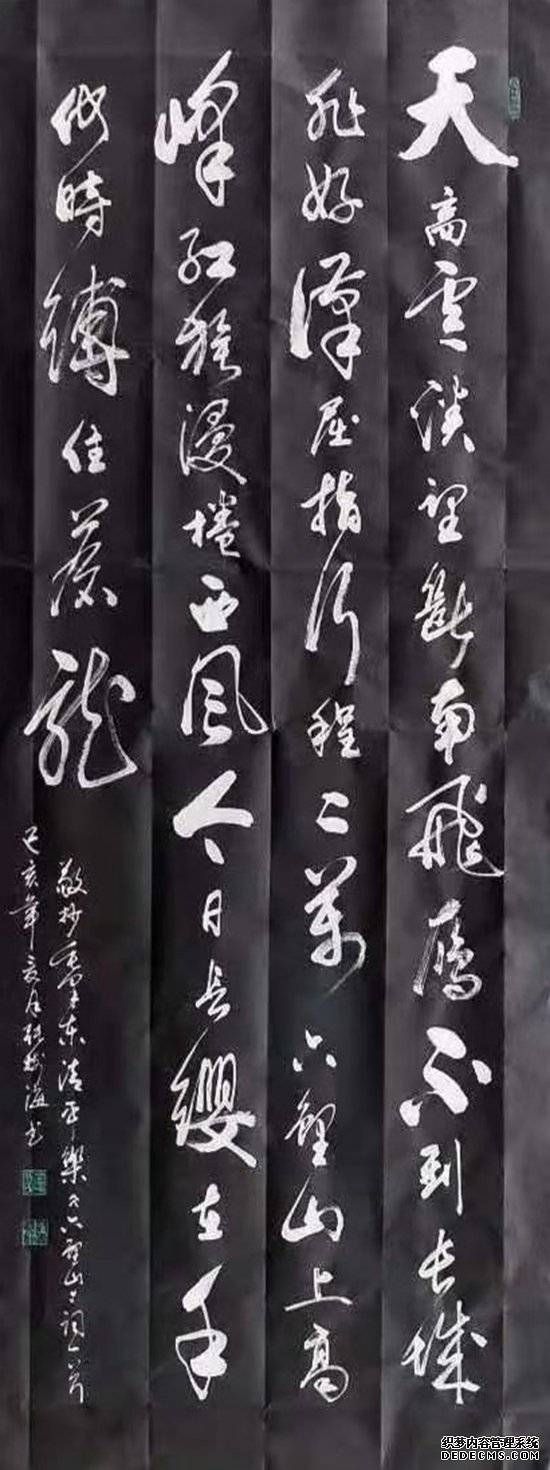 天高雲淡望斷南飛鴈不到長城
非好漢屈指行程二萬六盤山上高
峰紅旗漫捲西風今日長纓在手
何時縛住蒼龍
敬抄毛澤東清平樂之六盤山之詞一首
己亥年亥月海书
织梦内容管理系统
DEDECMS.COM